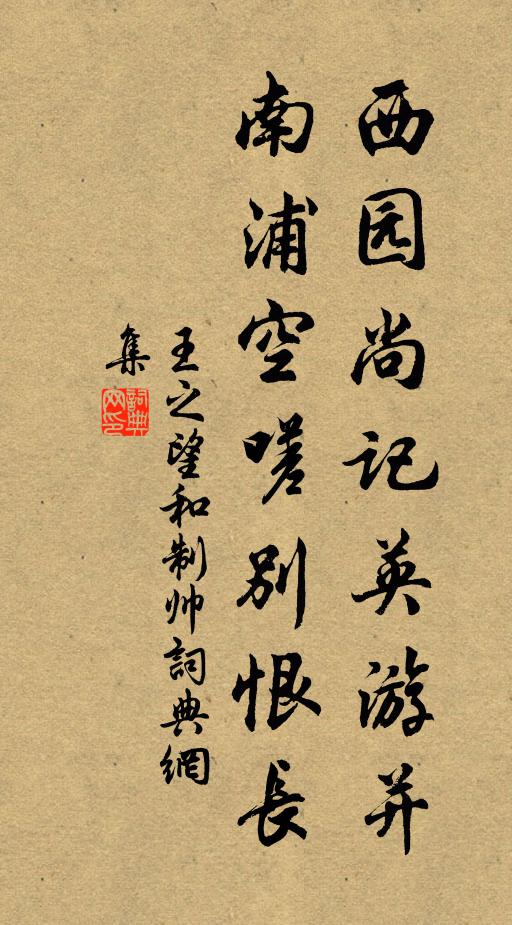 西园尚记英游并
南浦空嗟别恨長
王之望和制帅詞典網
集
詞典
网印